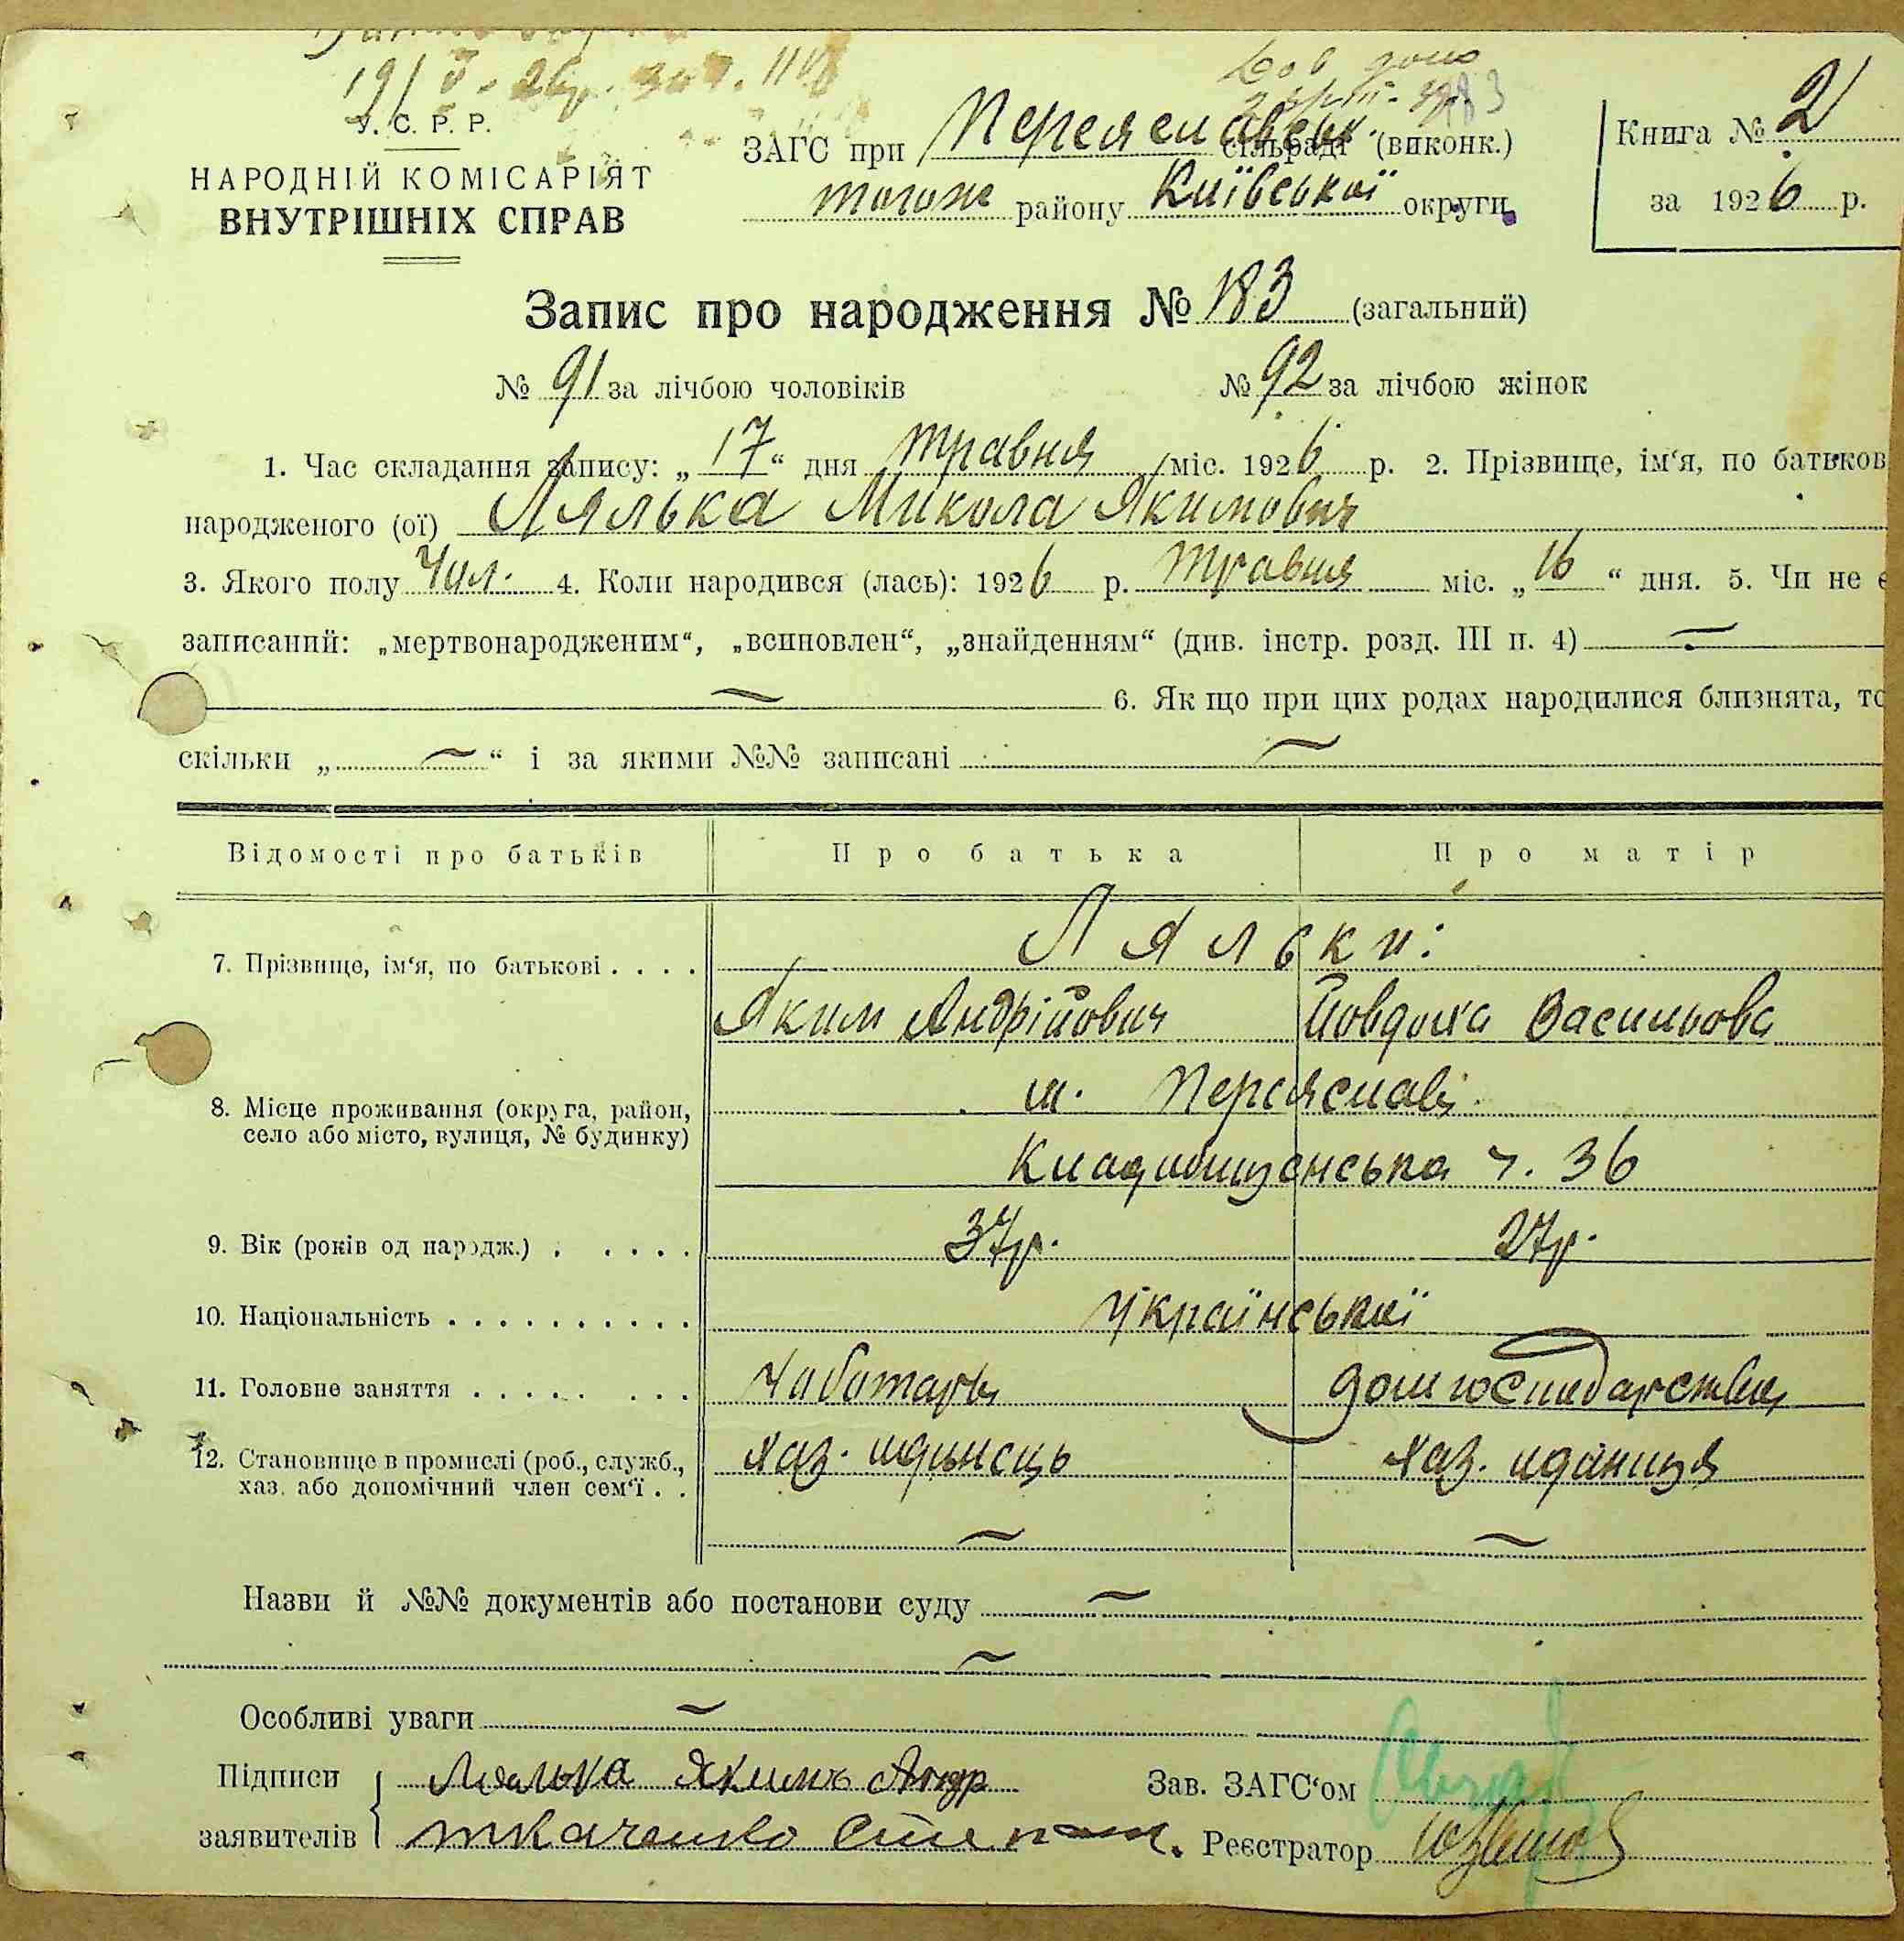 У. С. Р. Р.
НАРОДНІЙ КОМІСАРІЯТ
ВНУТРІШНІХ СПРАВ
ЗАГС при Переяславськ. сільраді (виконк.)
тогож району Київської округи
Книга № 2
за 1926 р.
Запис про народження № 183 (загальний)
№ 91 за лічбою чоловіків № 92 за лічбою жінок
1. Час складання запису: „17“ дня травня міс. 1926 р. 2. Прізвище, ім‘я, по батьков
народженого (ої) Лялька Микола Якимович
3. Якого полу Чол. 4. Коли народився (лась): 1926 р. травня міс. „16“ дня. 5. Чи не є
записаний: „мертвонародженим“, „всиновлен“, „знайденням“ (див. інстр. розд. III п. 4) —
— 6. Як що при цих родах народилися близнята, то
скільки „—“ і за якими №№ записані —
Відомості про батьків Про батька Про матір
7. Прізвище, ім‘я, по батькові . . . . Ляльки:
Яким Андрійович Йовдоха Васильова
8. Місце проживання (округа, район, м. Переяслав
село або місто, вулиця, № будинку)
Кладовищенська ч. 36
9. Вік (років од народж.) . . . . . 37р. 27р.
10. Національність . . . . . . . . . . Української
11. Головне заняття . . . . . . . . Чоботарь дом господарства
12. Становище в промислі (роб., служб., хаз. одинець хаз. одиниця
хаз. або допомічний член сем‘ї . .
— —
Назви й №№ документів або постанови суду —
—
Особливі уваги —
Підписи Лялька Якимъ Андр Зав. ЗАГС‘ом
заявителів Ткаченко Степан. Реєстратор